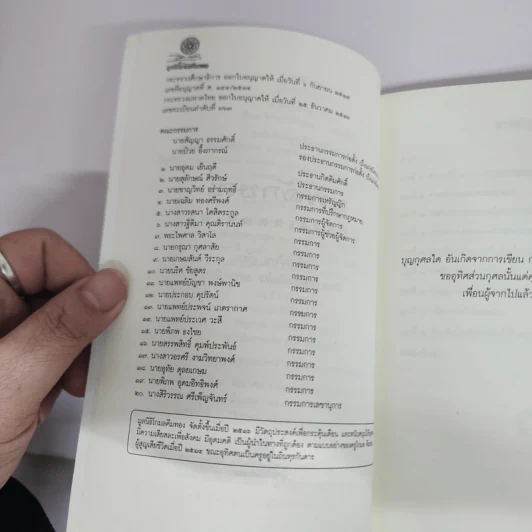 มูลนิธิโกมลคีมทอง
กระทรวงศึกษาธิการ ออกใบอนุญาตให้ เมื่อวันที่ ๖ กันยายน ๒๕๑๔
เลขที่อนุญาตที่ ต.
กระทรวงมหาดไทย ออกใบอนุญาตให้ เมื่อวันที่ ๒๕ ธันวาคม ๒๕๑๔
เลขทะเบียนลำดับที่
คณะกรรมการ
นายสัญญา ธรรมศักดิ์ ประธานกรรมการก่อตั้ง
นายป๋วย อึ๊งภากรณ์ รองประธานกรรมการก่อตั้ง
๑. นายอุดม เย็นฤดี ประธานกิตติมศักดิ์
๒. นายสุลักษณ์ ศิวรักษ์ ประธานกรรมการ
๓. นายชาญวิทย์ อร่ามฤทธิ์ กรรมการเหรัญญิก
๔. นายเฉลิม ทองศรีพงศ์ กรรมการที่ปรึกษากฎหมาย
๕. นางสาวรสนา โตสิตระกูล กรรมการผู้จัดการ
๖. นางสาวฐิติมา คุณติรานนท์ กรรมการผู้ช่วยผู้จัดการ
๗. พระไพศาล วิสาโล กรรมการ
๘. นายกรุณา กุศลาสัย กรรมการ
๙. นายเกษมสันต์ วีระกุล กรรมการ
๑๐. นายนริศ ชัยสูตร กรรมการ
๑๑. นายแพทย์บัญชา พงษ์พานิช กรรมการ
๑๒. นายประกอบ คุปรัตน์ กรรมการ
๑๓. นายแพทย์ประพจน์ เภตรากาศ กรรมการ
๑๔. นายแพทย์ประเวศ วะสี กรรมการ
๑๕. นายพิภพ ธงไชย กรรมการ
๑๖. นายสรรพสิทธิ์ คุมพ์ประพันธ์ กรรมการ
๑๗. นางสาวอรศรี งามวิทยาพงศ์ กรรมการ
๑๘. นายอุทัย ดุลยเกษม กรรมการ
๑๙. นายพิภพ อุดมอิทธิพงศ์ กรรมการ
๒๐. นางสิริวรรณ ศรีเพ็ญจันทร์ กรรมการเลขานุการ
มูลนิธิโกมลคีมทอง จัดตั้งขึ้นเมื่อปี ๒๕๑๔ มีวัตถุประสงค์เพื่อกระตุ้นเตือน และสนับสนุนให้
มีความเสียสละเพื่อสังคม มีอุดมคติ เป็นผู้นำในทางที่ถูกต้อง ตามแบบอย่างของครูโกมล
ผู้สูญเสียชีวิตเมื่อปี ๒๕๑๔ ขณะอุทิศตนเป็นครูอยู่ในถิ่นทุรกันดาร
บุญกุศลใด อันเกิดจากการเขียน
ขออุทิศส่วนกุศลนั้นแด่
เพื่อนผู้จากไปแล้ว